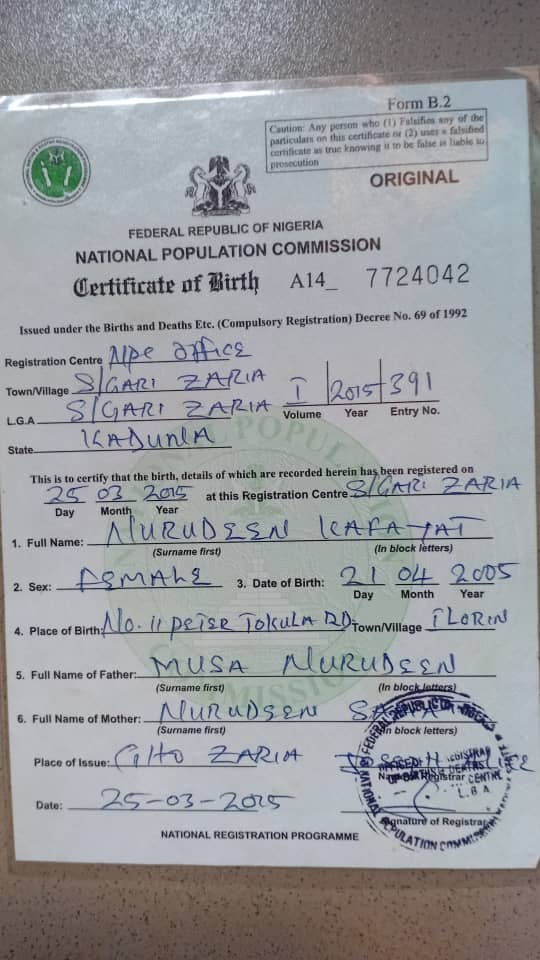 Form B.2
Caution: Any person who (1) Falsifies any of the
particulars on this certificate or (2) uses a falsified
certificate as true knowing it to be false is liable to
prosecution
ORIGINAL
FEDERAL REPUBLIC OF NIGERIA
NATIONAL POPULATION COMMISSION
Certificate of Birth A14_ 7724042
Issued under the Births and Deaths Etc. (Compulsory Registration) Decree No. 69 of 1992
Registration Centre NPC OFFICE
Town/Village S/GARI ZARIA
L.G.A S/GARI ZARIA I 2015 391
Volume Year Entry No.
State KADUNA
This is to certify that the birth, details of which are recorded herein has been registered on
25 03 2015 at this Registration Centre S/GARI ZARIA
Day Month Year
1. Full Name: NURUDEEN KAFAYAT
(Surname first) (In block letters)
2. Sex: FEMALE 3. Date of Birth: 21 04 2005
Day Month Year
4. Place of Birth: No. 11 PETER TOKULA RD. Town/Village ILORIN
5. Full Name of Father: MUSA NURUDEEN
(Surname first) (In block letters)
6. Full Name of Mother: NURUDEEN
(Surname first) (In block letters)
Place of Issue: ZARIA
Name of Registrar
Date: 25-03-2015
Signature of Registrar
NATIONAL REGISTRATION PROGRAMME